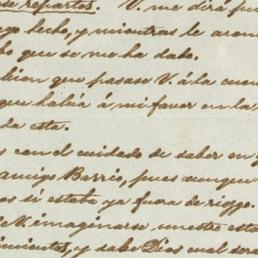 se repartos. V. me dirá
go hecho, y mientras le
bo que se me ha dado.
bien que pasase V. á la
que había á mi favor en la
da esta.
s con el cuidado de saber en
amigo Barrio, pues aunque
os si estaba ya fuera de riesgo.
V. imaginarse nuestro
y sabe Dios cual será